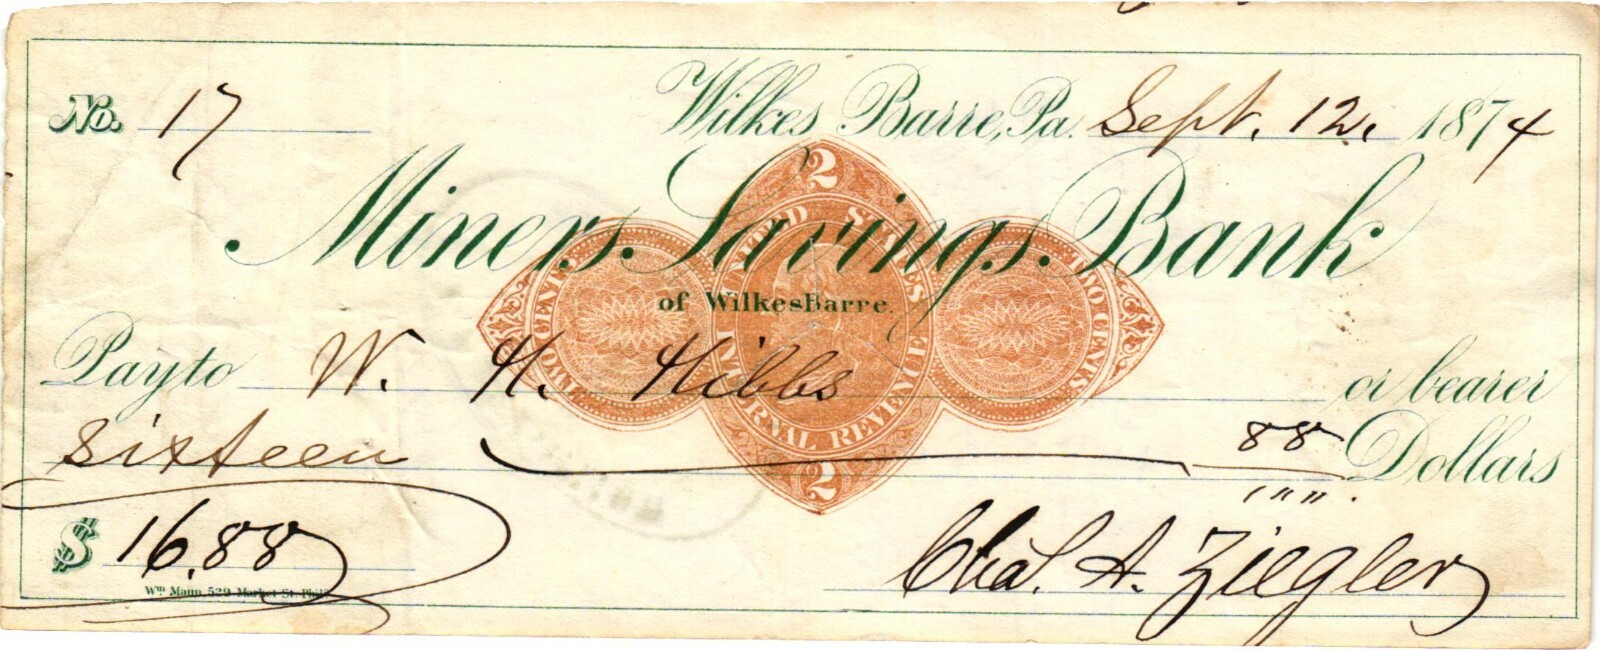 No. 17 Wilkes Barre, Pa. Sept. 12, 1874
Miners Savings Bank
of WilkesBarre.
Pay to W. H. Hibbs or bearer
sixteen 88/100 Dollars
$ 16.88
Chas. A. Ziegler
Wm Mann, 529 Market St. Phil
2
UNITED STATES
INTERNAL REVENUE
TWO CENTS
TWO CENTS
2